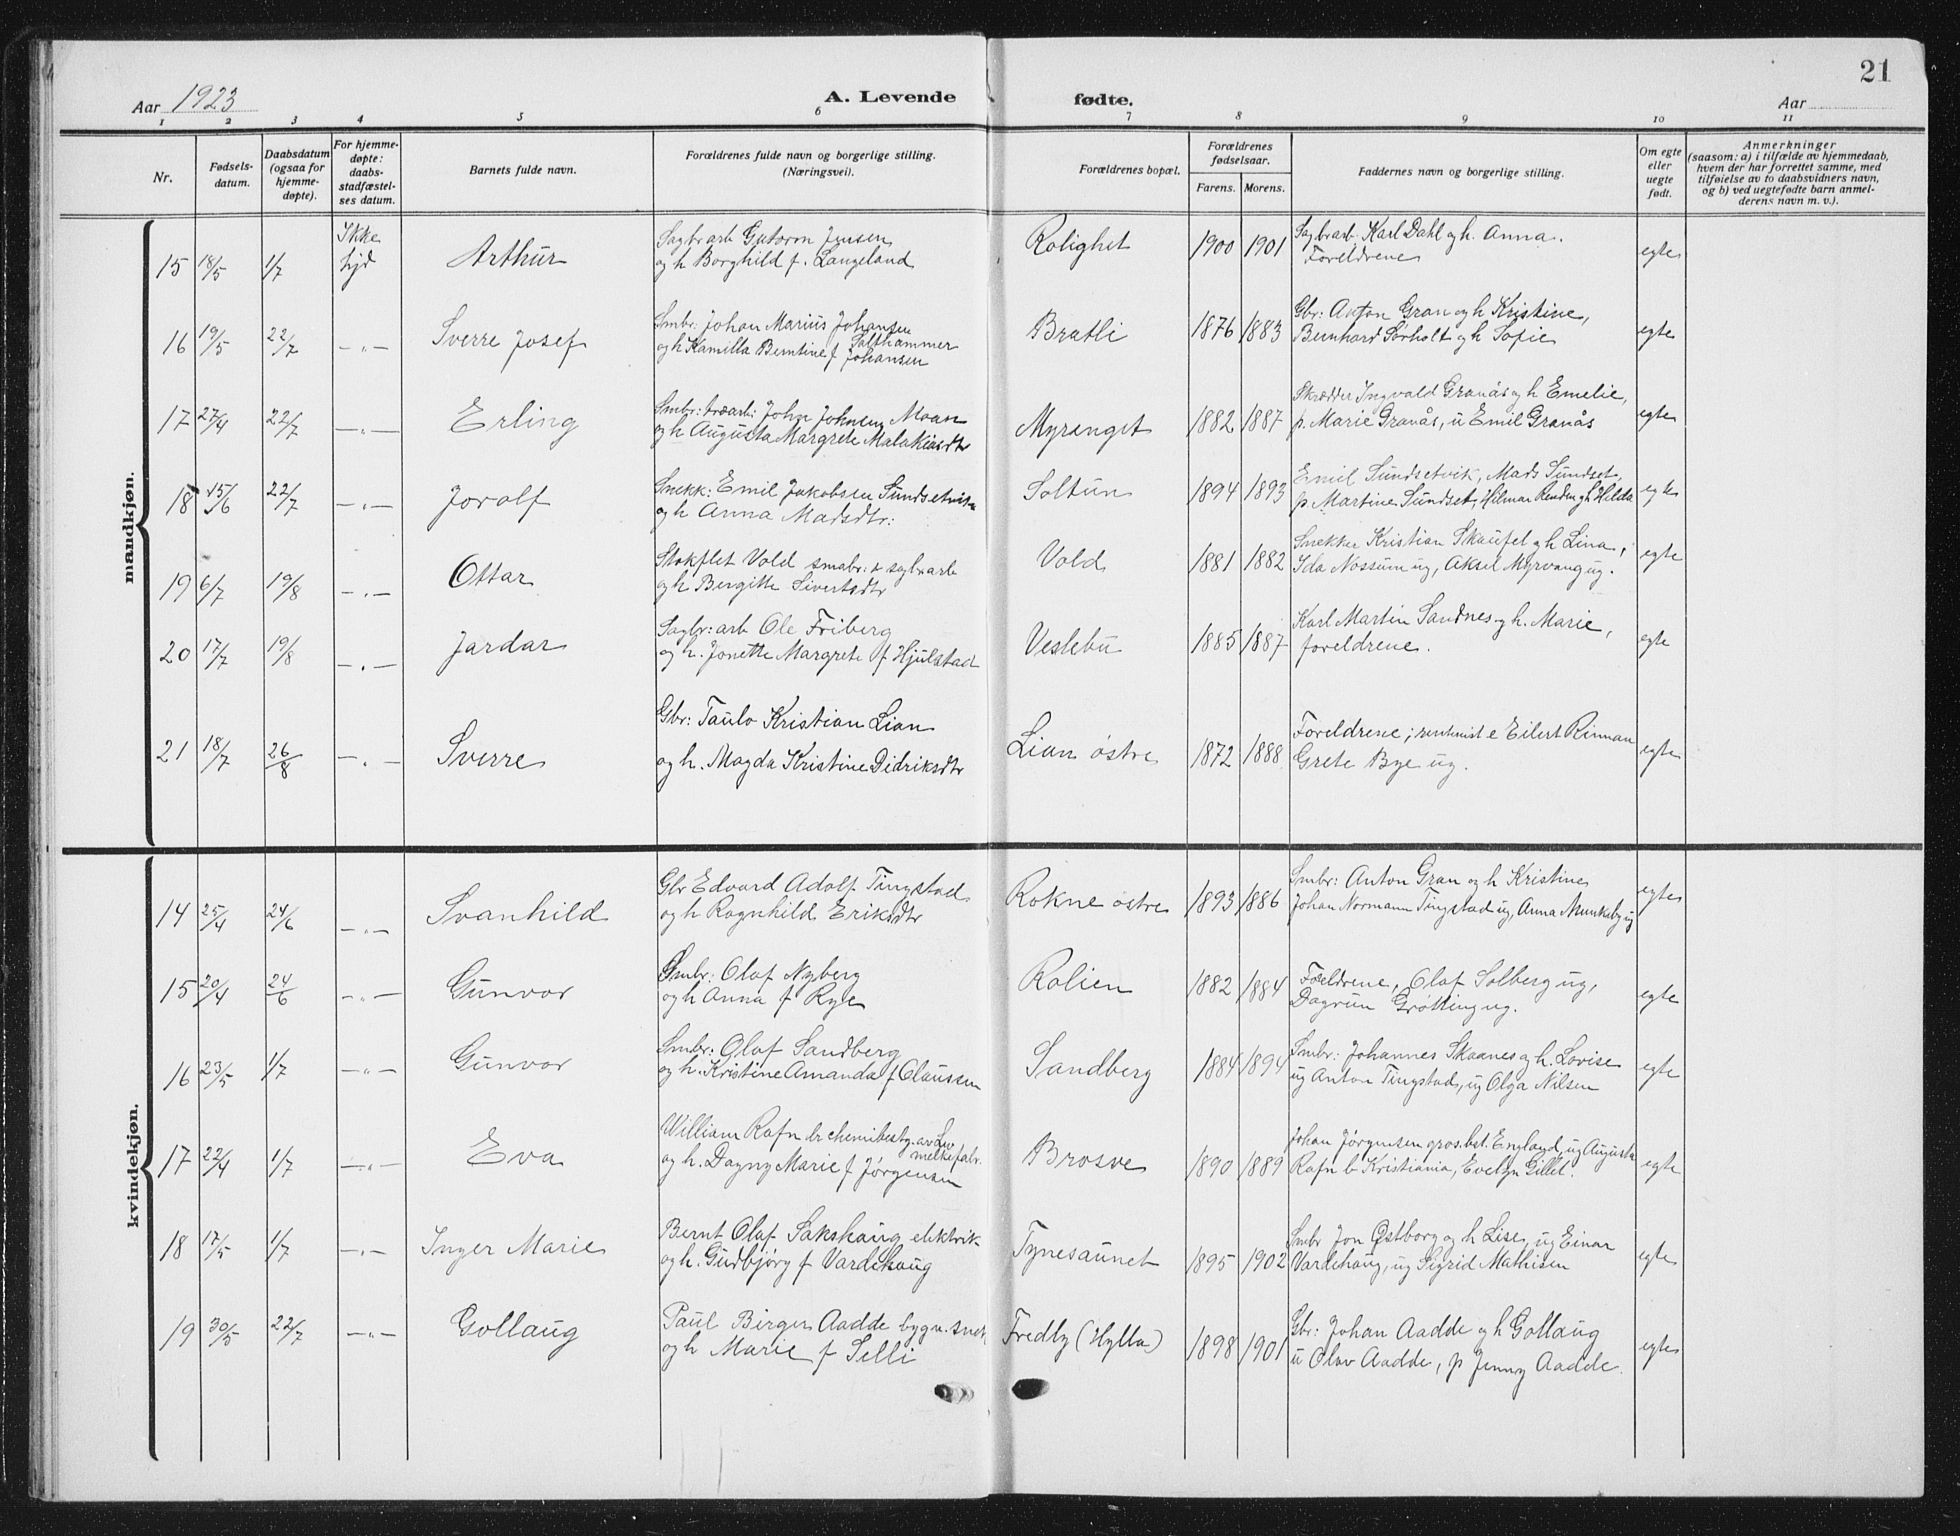 21
Aar 1923
A. Levende fødte.
Aar
1 2 3 4 5 6 7 8 9 10 11
Nr.
Fødsels-
datum.
Daabsdatum
(ogsaa for
hjemme-
døpte).
For hjemme-
døpte:
daabs-
stadfæstel-
ses datum.
Barnets fulde navn.
Forældrenes fulde navn og borgerlige stilling.
(Næringsvei).
Forældrenes bopæl.
Forældrenes
fødselsaar.
Farens. Morens.
Faddernes navn og borgerlige stilling.
Om egte
eller
uegte
født.
Anmerkninger
(saasom: a) i tilfælde av hjemmedaab,
hvem der har forrettet samme, med
tilføielse av to daabsvidners navn,
og b) ved uegtefødte barn anmel-
derens navn m. v.).
mandkjøn.
15 18/5 1/7 Ikke
Arthur
Sagbr arb Gutorm Jensen
og h Borghild f. Langeland
Rolighet 1900 1901
Sagbr arb. Karl Dahl og h. Anna.
Foreldrene
egte
16 19/5 22/7 -"-
Sverre Josef
Smbr: Johan Marius Johansen
Salthammer
og h Kamilla Berntine f Johansen
Bratli 1876 1883
Gbr: Anton Gran og h Kristine,
Bernhard Sørholt og h Sofie
egte
17 27/4 22/7 -"-
Erling
Smbr: træarb: John Johnsen Moan
og h Augusta Margrete Malakiasdtr
Myrenget 1882 1887
Skrædder Ingvald Granås og h Emelie,
p. Marie Granås, u Emil Granås
egte
18 15/6 22/7 -"-
Jorolf
Snekk: Emil Jakobsen Sundsetvik
og h Anna Madsdtr:
Soltun 1894 1893
Emil Sundsetvik, Mads Sundset,
p. Martine Sundset, Hilmar Renden og h Hilda
egte
19 6/7 19/8 -"-
Ottar
Stokflet Vold smabr: & sagbr arb
og h Bergitte Sivertsdtr
Vold 1881 1882
Snekker Kristian Skaufel og h Lina,
Ida Nossum ug, Aksel Myrvang ug.
egte
20 17/7 19/8 -"-
Jardar
Sagbr: arb Ole Friberg
og h. Jonette Margrete f Hjulstad
Veslebu 1885 1887
Karl Martin Sandnes og h. Marie,
foreldrene.
egte
21 18/7 26/8 -"-
Sverre
Gbr: Paulo Kristian Lian
og h. Magda Kristine Didriksdtr
Lian østre 1872 1888
Foreldrene; rentenist e Eilert Rinnan
Grete Bye ug.
egte
kvindekjøn.
14 25/4 24/6 -"-
Svanhild
Gbr Edvard Adolf Tingstad
og h Ragnhild Eriksdtr
Rokne østre 1893 1886
Smbr: Anton Gran og h Kristine
Johan Normann Tingstad ug, Anna Munkeby ug
egte
15 20/4 24/6 -"-
Gunvor
Smbr: Olaf Nyberg
og h Anna f Rye
Rolien 1882 1884
Foreldrene, Olaf Solberg ug,
Dagrun Grotting ug.
egte
16 23/5 1/7 -"-
Gunvor
Smbr: Olaf Sandberg
og h. Kristine Amanda f Claussen
Sandberg 1884 1894
Smbr: Johannes Skaanes og h. Lovise
ug Anton Tingstad, ug Olga Nilsen
egte
17 22/4 1/7 -"-
Eva
William Rafn br chemibestyr. av
melkefabr.
og h. Dagny Marie f Jørgensen
Brosve 1890 1889
Johan Jørgensen gros. bst. England, ug Augusta
Rafn br Kristiania, Evelyn Gillet.
egte
18 17/5 1/7 -"-
Inger Marie
Bernt Olaf Sakshaug elektrik
og h. Gudbjørg f Vardehaug
Tynesaunet 1895 1902
Smbr Jon Østborg og h Lise, ug Einar
Vardehaug, ug Sigrid Mathisen
egte
19 30/5 22/7 -"-
Gollaug
Paul Birger Aadde bygn. snek
og h Marie f Selli
Fredly (Hylla) 1898 1901
Gbr: Johan Aadde og h Gollaug
u Olav Aadde, p Jenny Aadde.
egte